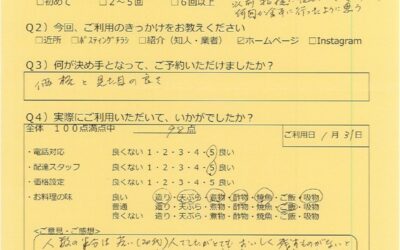 □初めて □2～5回 □6回以上
何回か食事に行ったように思う
Q2）今回、ご利用のきっかけをお教えください
□近所 □ﾎﾟｽﾃｨﾝｸﾞﾁﾗｼ □紹介（知人・業者） ☑ホームページ □Instagram
Q3）何が決め手となって、ご予約いただけましたか？
価格と見た目の良さ
Q4）実際にご利用いただいて、いかがでしたか？
全体 100点満点中 92点
ご利用日 1月31日
・電話対応 良くない 1・2・3・4・5 良い
・配達スタッフ 良くない 1・2・3・4・5 良い
・価格設定 良くない 1・2・3・4・5 良い
・お料理の味 良い 造り・天ぷら・煮物・酢物・焼魚・ご飯・吸物
普通 造り・天ぷら・煮物・酢物・焼魚・ご飯・吸物
良くない 造り・天ぷら・煮物・酢物・焼魚・ご飯・吸物
＜ご意見・ご感想＞
人数の半分は若い(20代)人でしたがとてもおいしく残すものがないと